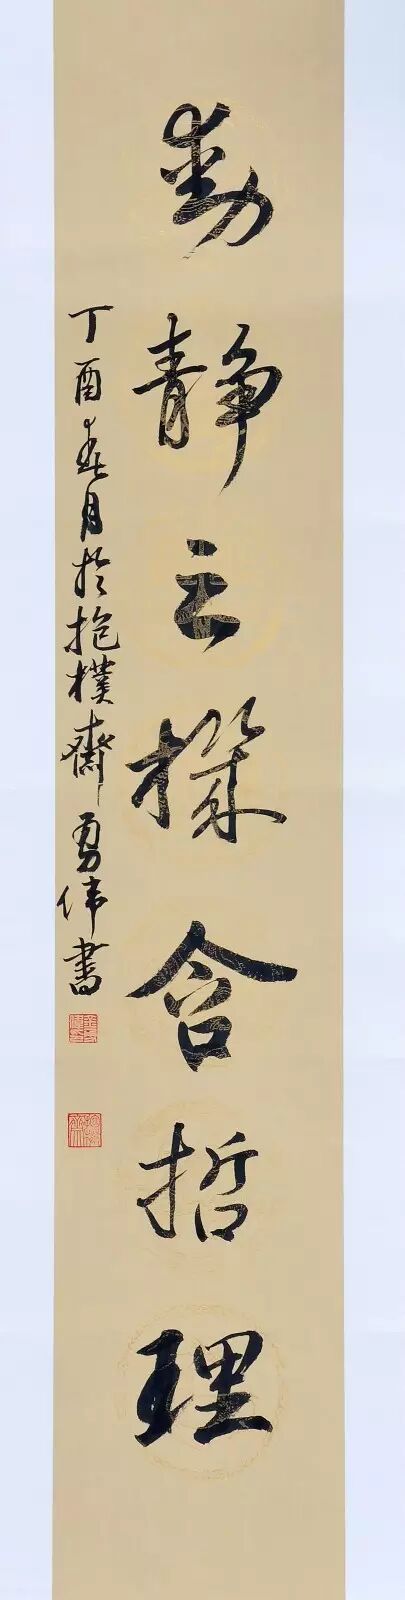 動静之機含哲理
丁酉春月於抱樸齋勇伟書